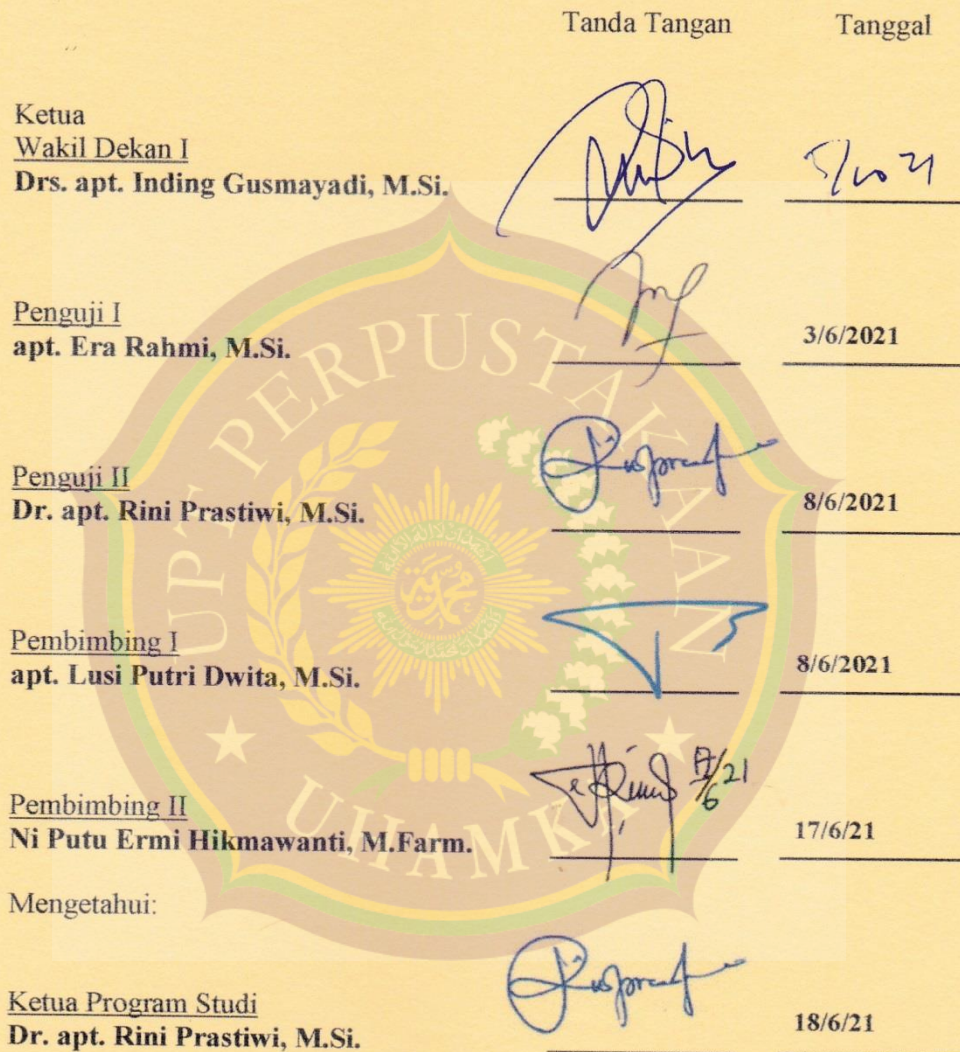 Tanda Tangan Tanggal
Ketua
Wakil Dekan I
Drs. apt. Inding Gusmayadi, M.Si.
Penguji I
apt. Era Rahmi, M.Si. 3/6/2021
Penguji II
Dr. apt. Rini Prastiwi, M.Si. 8/6/2021
Pembimbing I
apt. Lusi Putri Dwita, M.Si. 8/6/2021
Pembimbing II
Ni Putu Ermi Hikmawanti, M.Farm. 17/6/21
Mengetahui:
Ketua Program Studi
Dr. apt. Rini Prastiwi, M.Si. 18/6/21
UPT PERPUSTAKAAN
UHAMKA